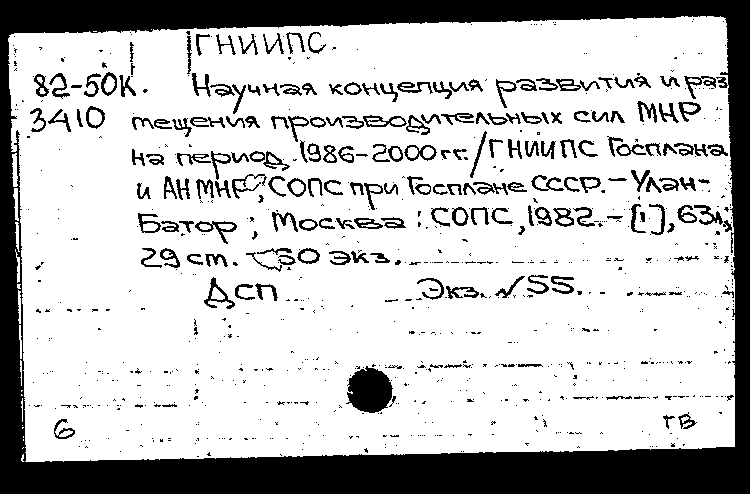 ГНИИПС.
82-50К. Научная концепция развития и раз
3410 мещения производительных сил МНР
на период 1986-2000 гг. / ГНИИПС Госплана
и АН МНР, СОПС при Госплане СССР. - Улан-
Батор ; Москва : СОПС, 1982. - [1], 63 л.;
29 cm. 50 экз.
ДСП Экз. № 55.
6 ГВ